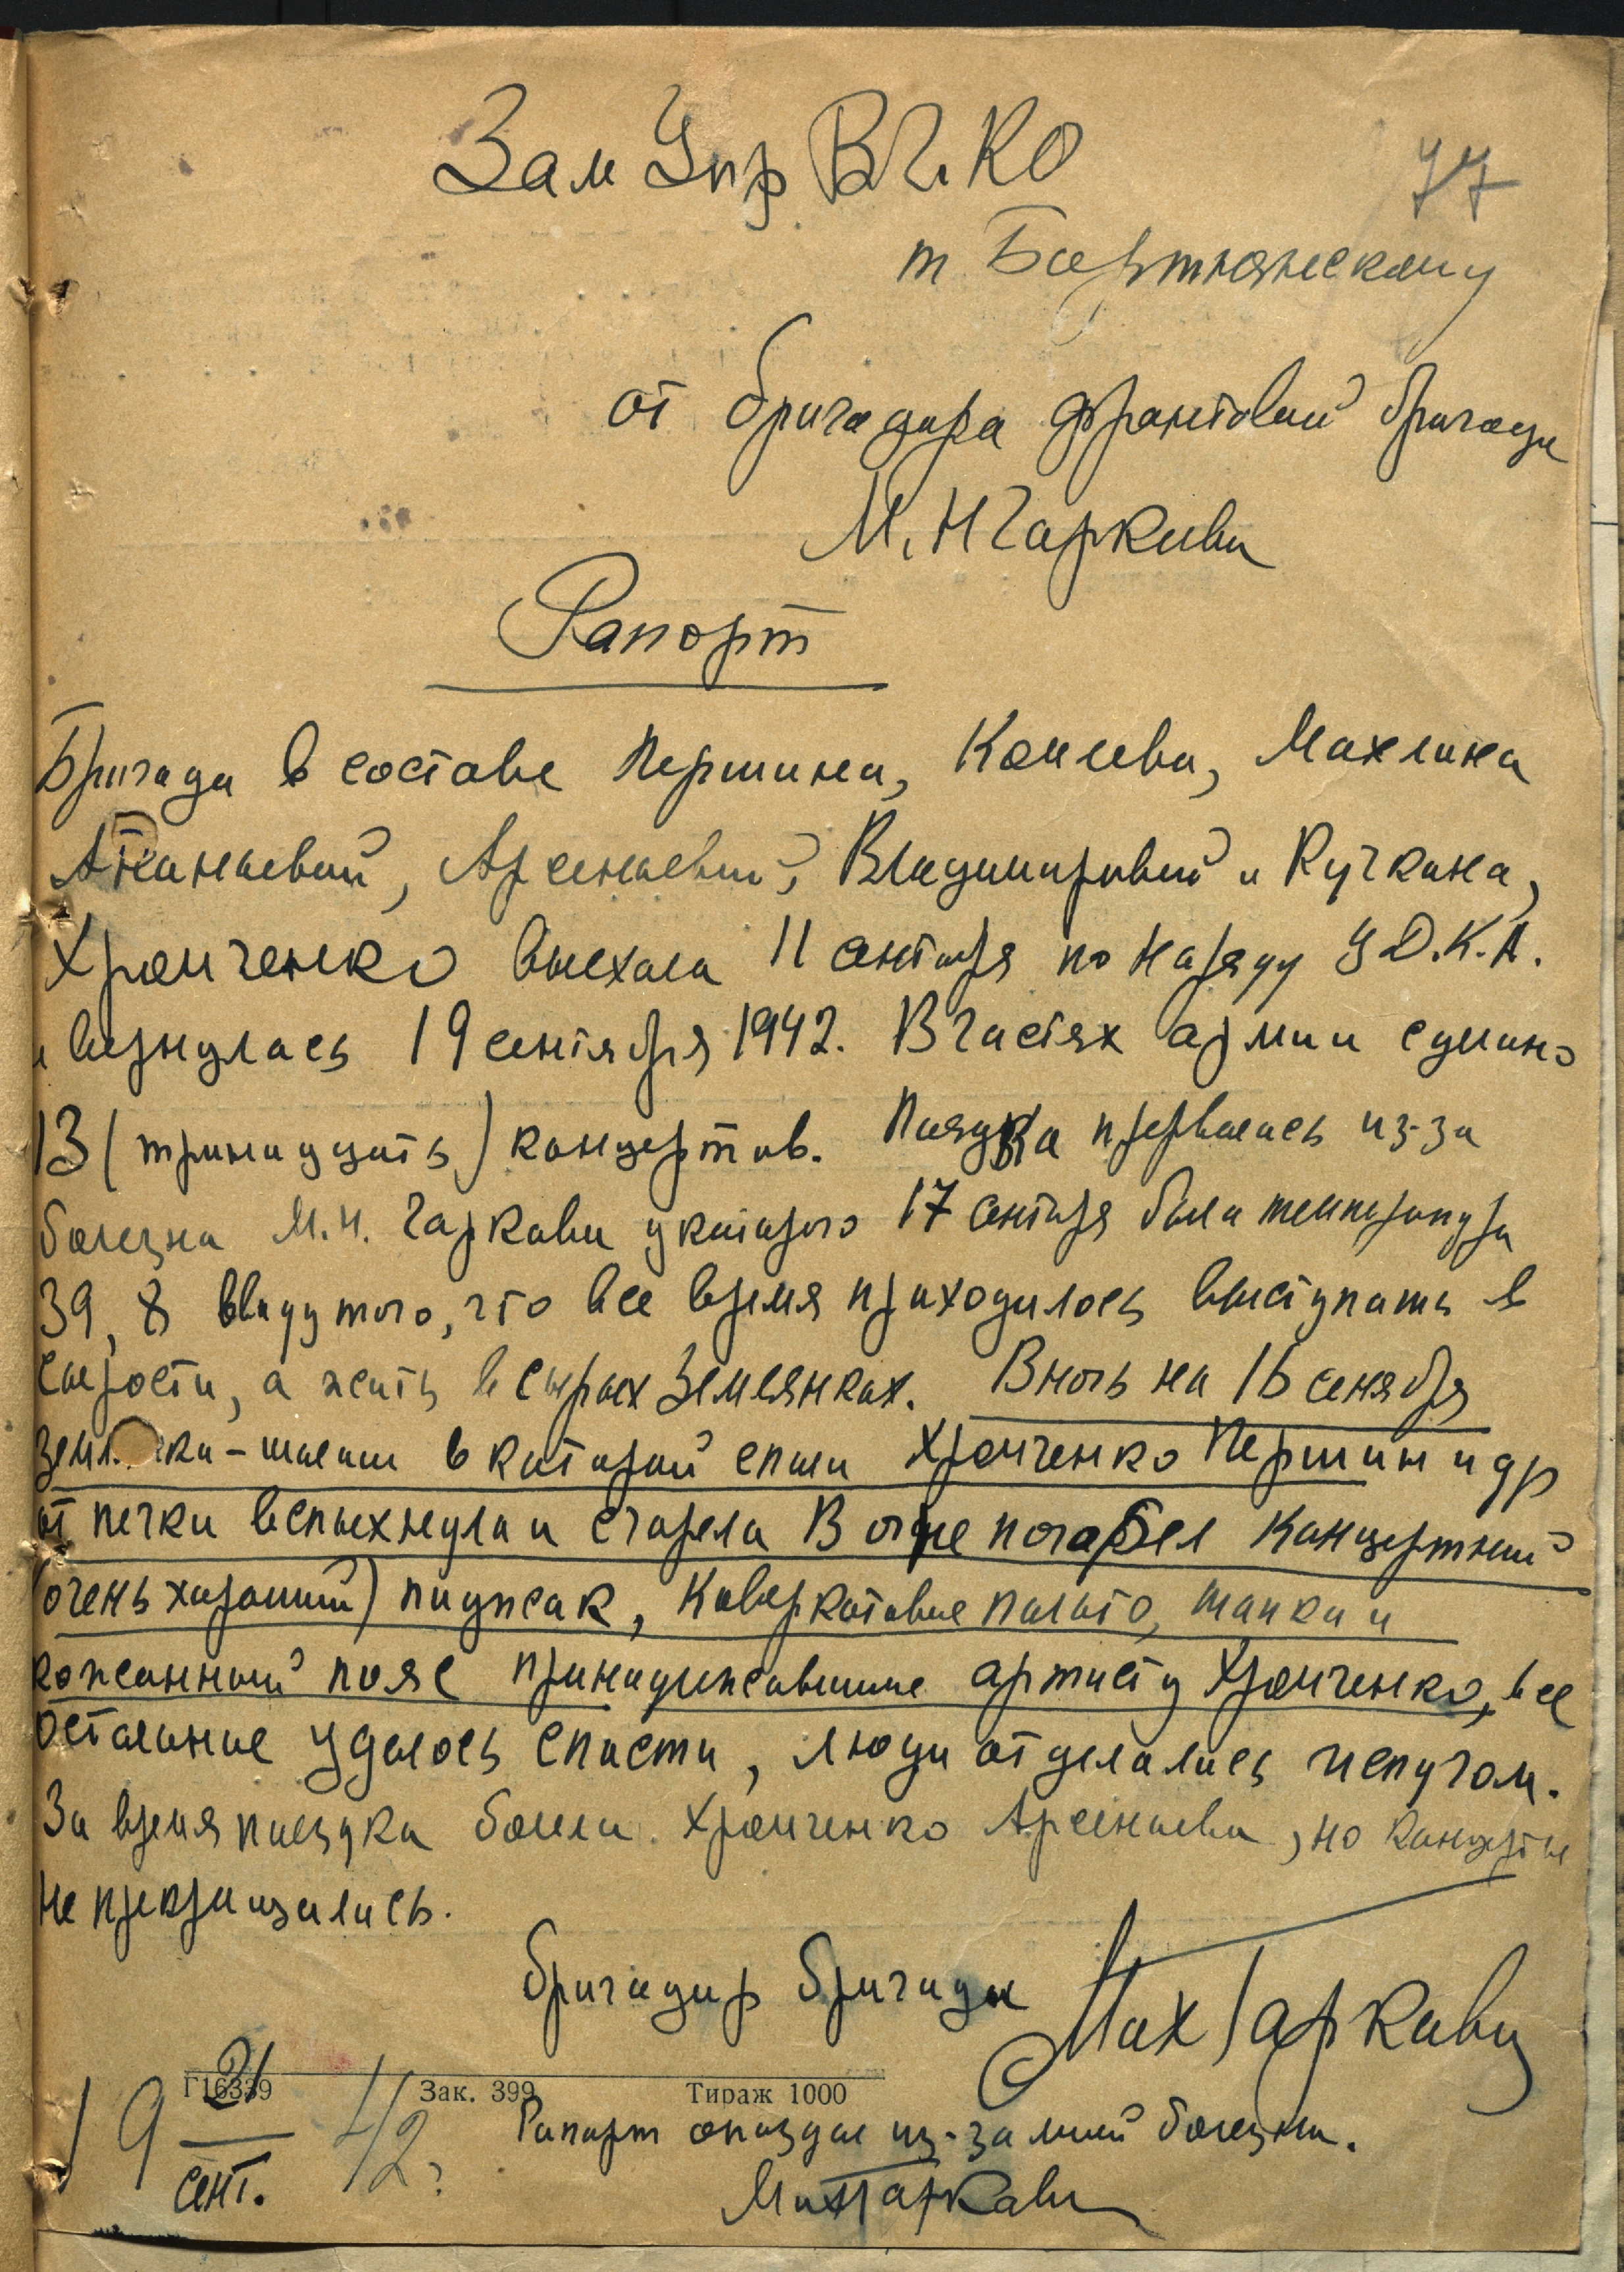 Зам Упр ВГКО
77
т. Бортнянскому
от бригадира фронтовой бригады
М. Н Гаркави
Рапорт
Бригада в составе Першина, Конева, Махлина
Ананьевой, Арсеньевой, Владимировой и Кучкина,
Хромченко выехала 11 сентября по наряду ЦД.К.А.
и вернулась 19 сентября 1942. В частях армии сделано
13 (тринадцать) концертов. Поездка прервалась из-за
болезни М.Н. Гаркави у которого 17 сентября была температура
39,8 ввиду того, что все время приходилось выступать в
сырости, а жить в сырых землянках. В ночь на 16 сенября
земл ка-шалаш в которой спали Хромченко Першин и др
от печки вспыхнула и сгорела В огне погабел концертный
(очень хороший) пиджак, Коверкотовое пальто, шапка и
кожанный пояс принадлежавшие артисту Хромченко, все
остальное удалось спасти, люди отделались испугом.
За время поездки болели Хромченко Арсеньева, но концерты
не прекращались.
бригадир бригады Мих Гаркави
Г16339 Зак. 399 Тираж 1000
19 21/сент. 42г
Рапорт опоздал из-за моей болезни.
Мих Гаркави